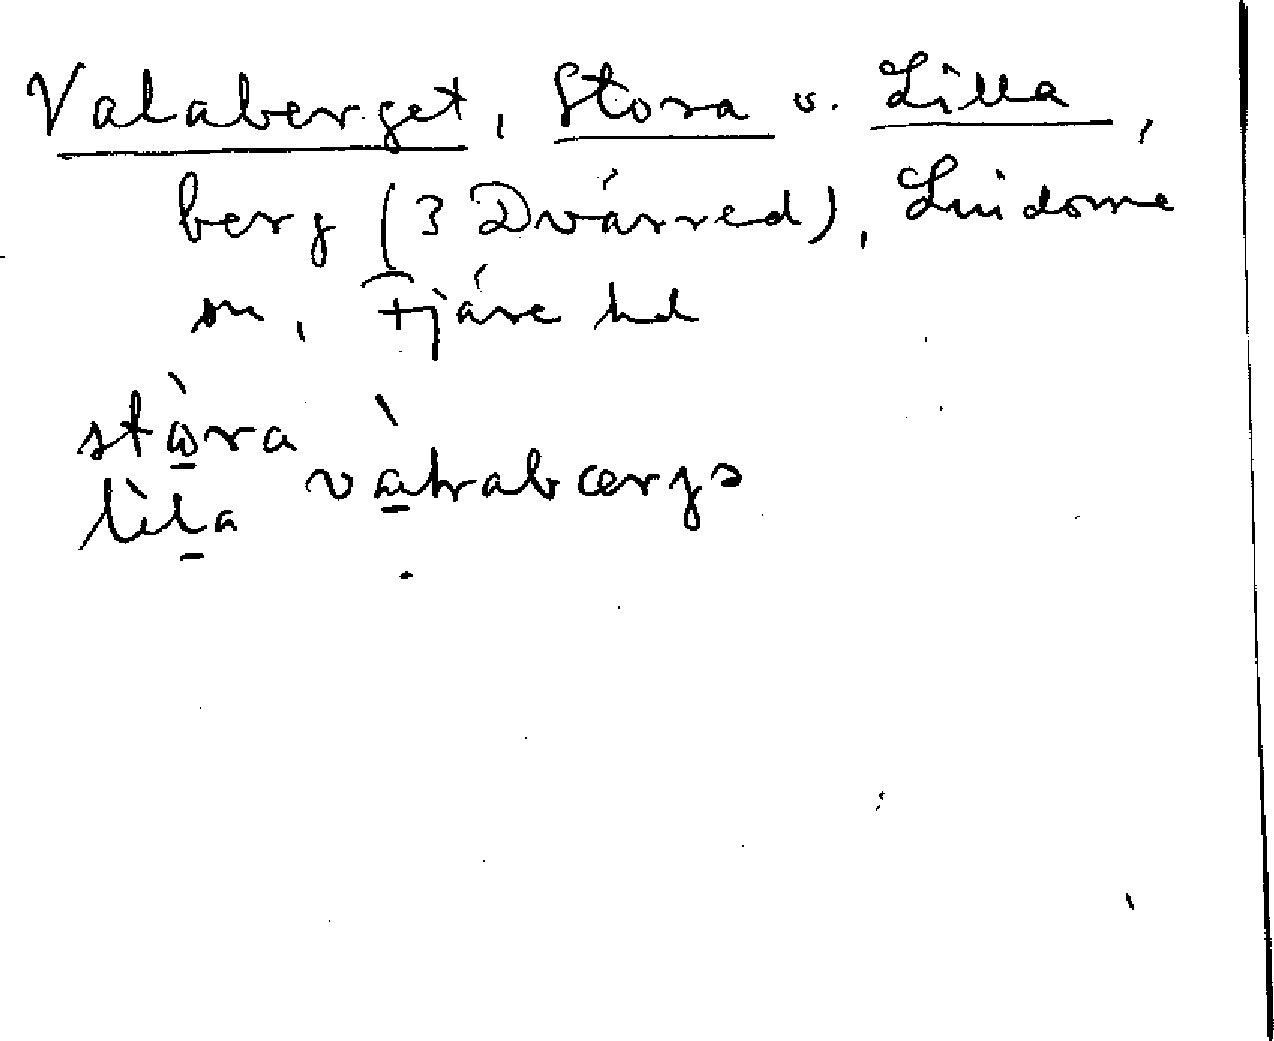 Valaberget, Stora o. Lilla,
berg (3 Dvärred), Lindome
sn, Fjäre hd
stòra
lìla vàlrabærgə